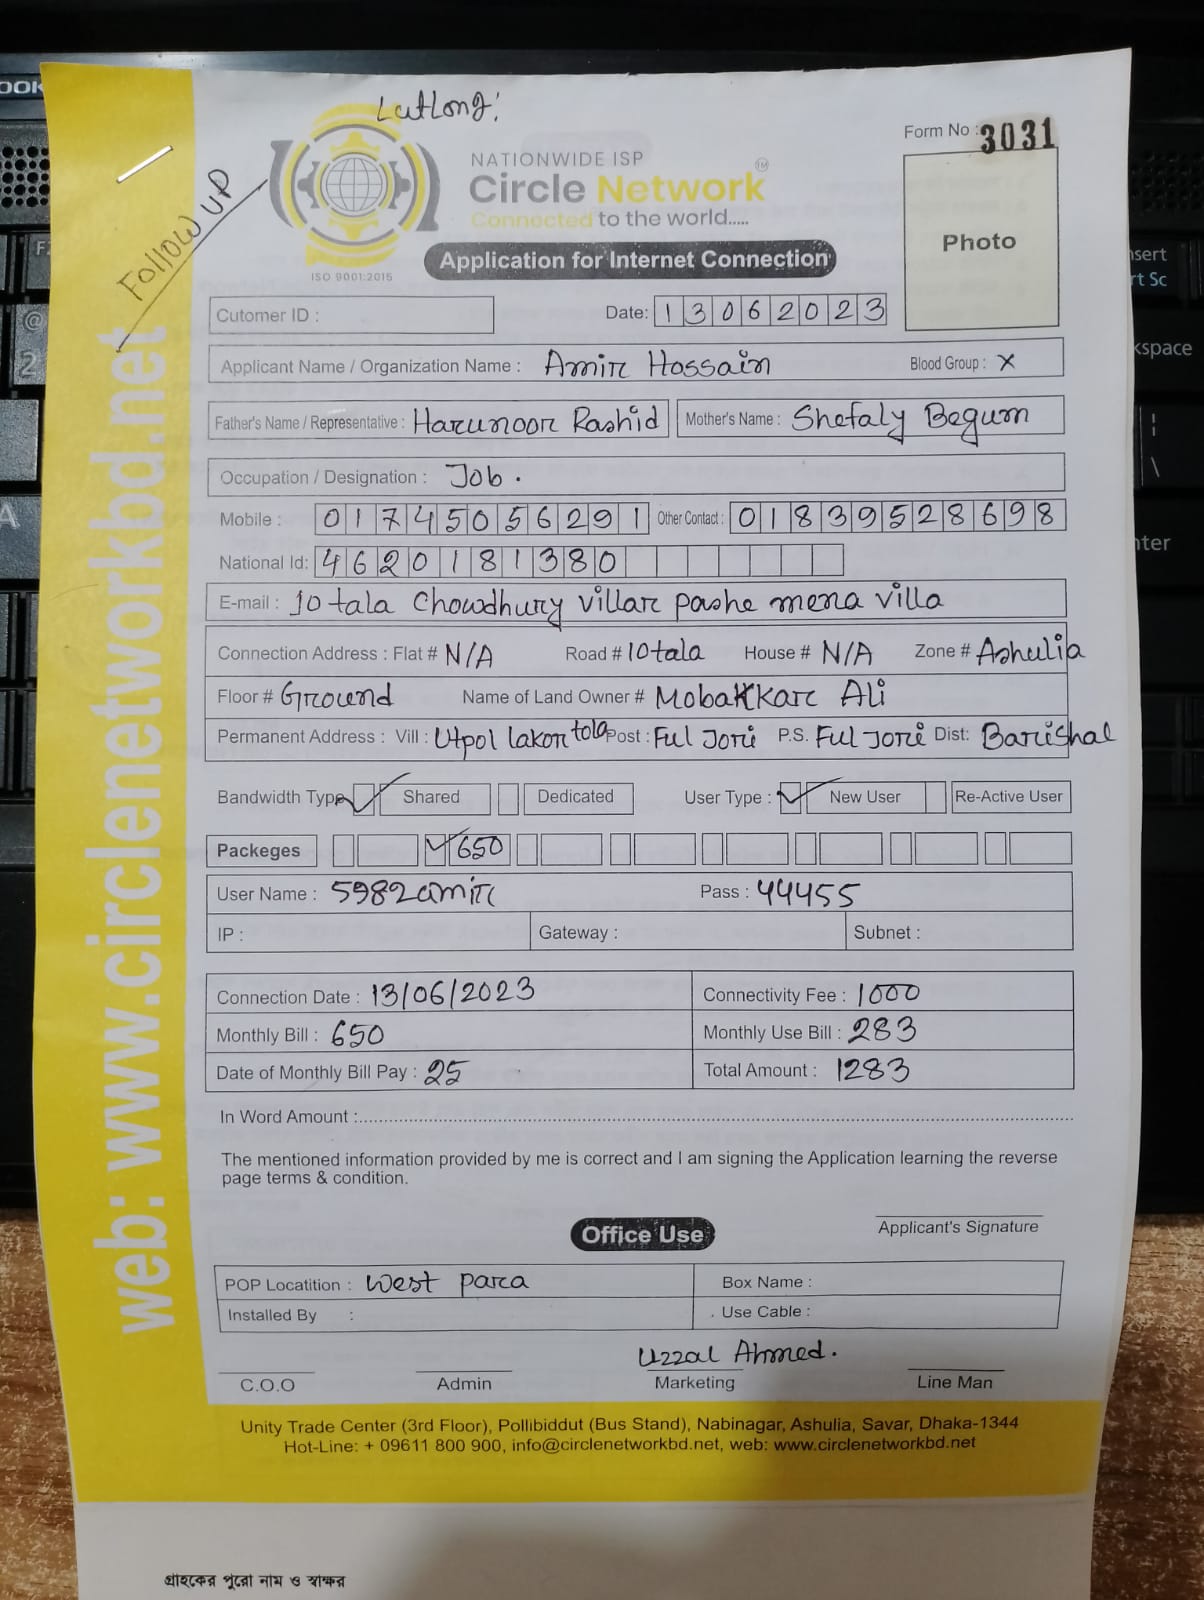 LatLong:
FOLLOW UP
Form No : 3031
NATIONWIDE ISP
Circle Network TM
Connected to the world.....
ISO 9001:2015
Photo
Application for Internet Connection
Cutomer ID :
Date: 13062023
Applicant Name / Organization Name : Amir Hossain Blood Group : X
Father's Name / Representative : Harunoor Rashid Mother's Name : Shefaly Begum
Occupation / Designation : Job .
Mobile : 01745056291 Other Contact : 01839528698
National Id: 4620181380
E-mail : 10 tala Chowdhury villar pashe mena villa
Connection Address : Flat # N/A Road # 10tala House # N/A Zone # Ashulia
Floor # Ground Name of Land Owner # Mobakkar Ali
Permanent Address : Vill : Utpol lakor tola Post : Ful Jori P.S. Ful Jori Dist: Barishal
Bandwidth Type Shared Dedicated User Type : New User Re-Active User
Packeges 650
User Name : 5982amir Pass : 44455
IP : Gateway : Subnet :
Connection Date : 13/06/2023 Connectivity Fee : 1000
Monthly Bill : 650 Monthly Use Bill : 283
Date of Monthly Bill Pay : 25 Total Amount : 1283
In Word Amount :
The mentioned information provided by me is correct and I am signing the Application learning the reverse
page terms & condition.
Applicant's Signature
Office Use
POP Locatition : West para Box Name :
Installed By : Use Cable :
Uzzal Ahmed.
C.O.O Admin Marketing Line Man
Unity Trade Center (3rd Floor), Pollibiddut (Bus Stand), Nabinagar, Ashulia, Savar, Dhaka-1344
Hot-Line: + 09611 800 900, info@circlenetworkbd.net, web: www.circlenetworkbd.net
web: www.circlenetworkbd.net
গ্রাহকের পুরো নাম ও স্বাক্ষর